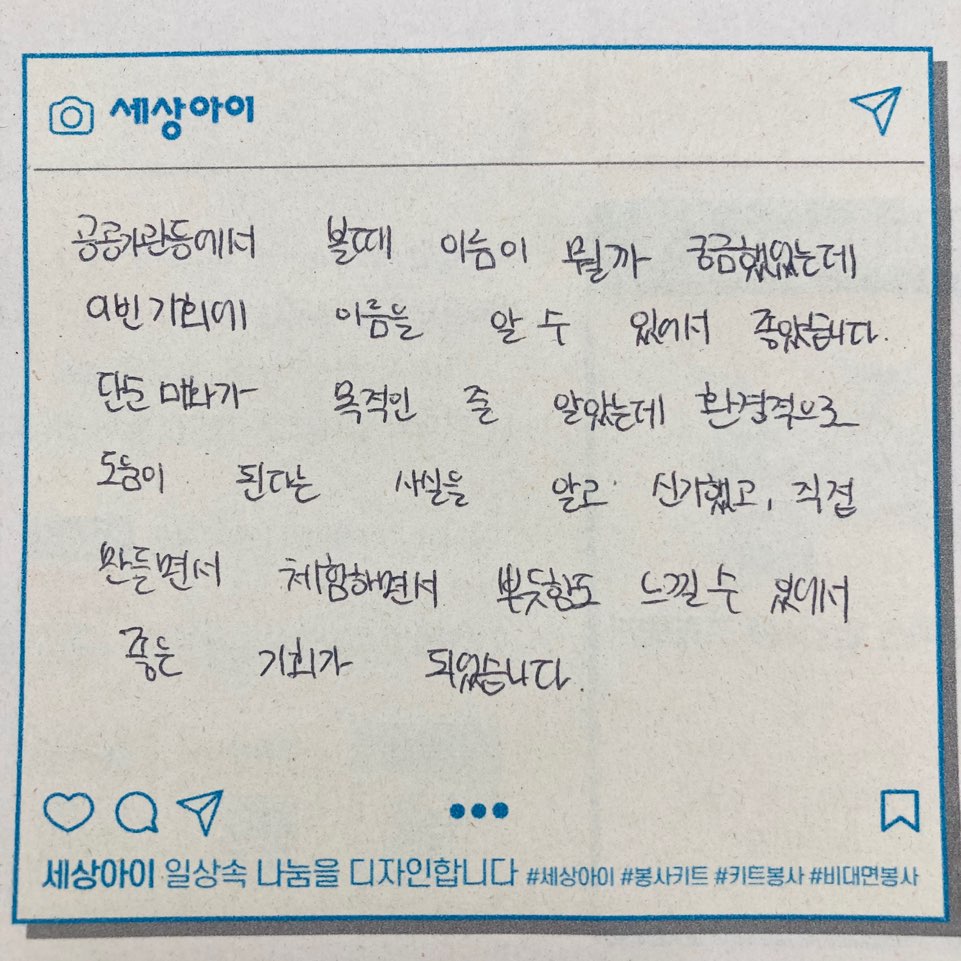 세상아이
공공기관등에서 볼때 이름이 뭘까 궁금했었는데
이번 기회에 이름을 알 수 있어서 좋았습니다.
단순 미화가 목적인 줄 알았는데 환경적으로
도움이 된다는 사실을 알고 신기했고, 직접
만들면서 체험하면서 뿌듯함도 느낄 수 있어서
좋은 기회가 되었습니다.
세상아이 일상속 나눔을 디자인합니다 #세상아이 #봉사키트 #키트봉사 #비대면봉사